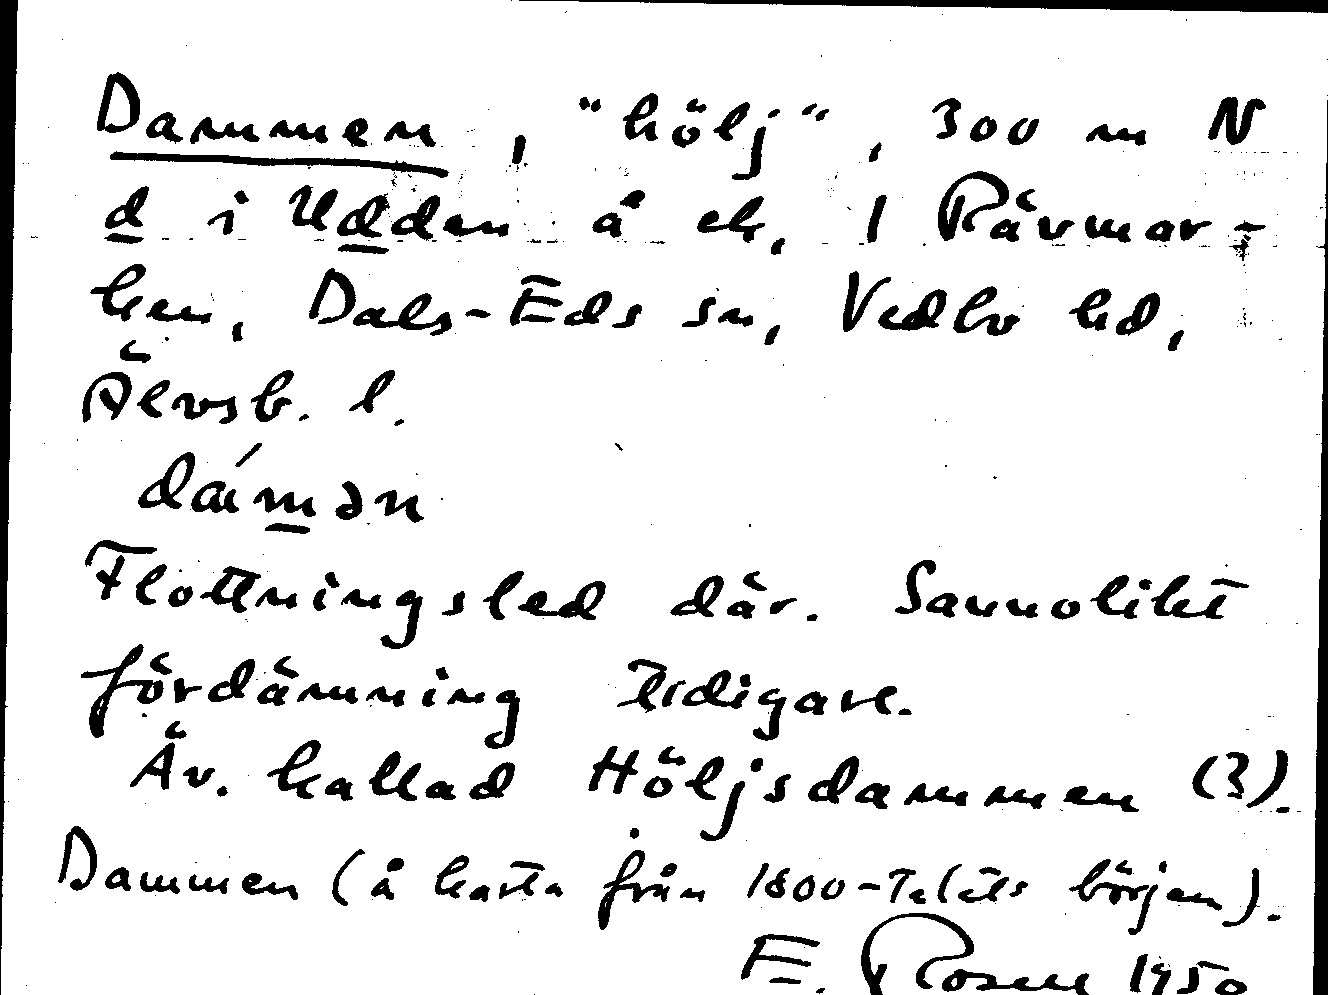 Dammen, "hölj", 300 m N
d i Udden å ek. 1 Rävmar-
ken, Dals-Eds sn, Vedbo hd,
Älvsb. l.
dámən
Flottningsled där. Sannolikt
fördämning tidigare.
Äv. kallad Höljsdammen (3).
Dammen (å karta från 1800-talets början).
E. Rosell 1950